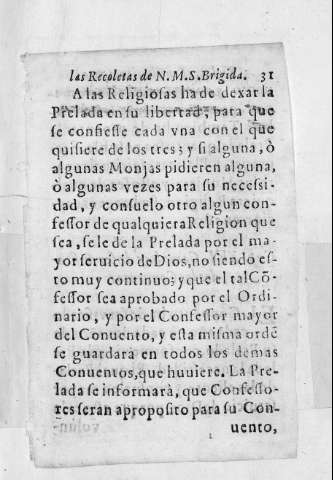 las Recoletas de N. M. S. Brigida. 31
A las Religiosas ha de dexar la
Prelada en su libertad, para que
se confiesse cada vna con el que
quisiere de los tres; y si alguna, ò
algunas Monjas pidieren alguna,
ò algunas vezes para su necessi-
dad, y consuelo otro algun con-
fessor de qualquiera Religion que
sea, se le de la Prelada por el ma-
yor seruicio de Dios, no siendo es-
to muy continuo; y que el tal Cõ-
fessor sea aprobado por el Ordi-
nario, y por el Confessor mayor
del Conuento, y esta misma ordẽ
se guardarà en todos los demas
Conuentos, que huuiere. La Pre-
lada se informarà, que Confesso-
res seran aproposito para su Con-
uento,